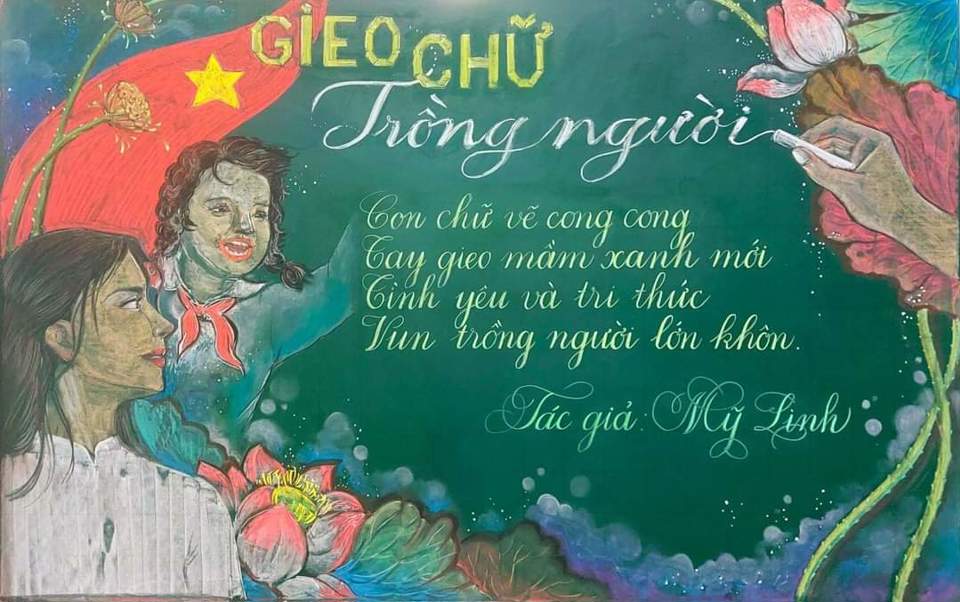 GIEO CHỮ
Trồng người
Con chữ vẽ cong cong
Tay gieo mầm xanh mới
Tình yêu và tri thức
Vun trồng người lớn khôn.
Tác giả: Mỹ Linh